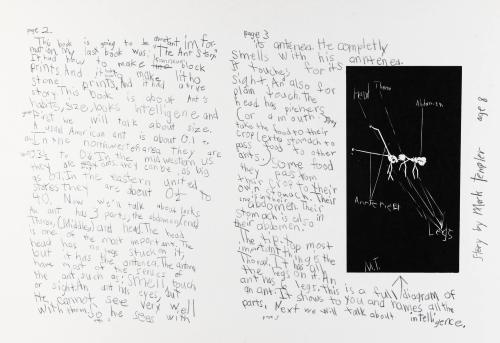 page 2
This book is going to be ant im for
mation. My last book was "The Ant Story"
It had how to make block
prints. And it make litho
stone prints. And it had a true
story. This book is about Ant's
habits, size, looks, intelligence and
First we will talk about size.
A usual American ant is about 0.1 to
In the northwest area. They are
0.3½ to 0.6. In the midwestern us
they are small. They can be as big
as 0.1. In the eastern united
states they are about 0.½ to
40. Now we'll talk about looks
An ant has 3 parts, the abdomen, (end)
Thorax, (Middle) and head. The head
is one of the most important. The
head has no legs stuck on it,
but it has the antenea. The antena
have most of the senses of
the ant such as; smell, touch
or sight. An ant has eyes, but
He cannot see very well
with them. So he sees with
page 3
its antenea. He completly
smells with his antenea.
It touches for its
sight. An also for
plain touch. The
head has pichers
(or a mouth. They
take the food to their
crop (extra stomach to
pass food to other
ants.) Some food
they pass from
their crop to their
own stomach. Their
abdomen. Their
stomach is also in
their abdomen.
The tip top most
important thing is the
Thorax. It has all
the legs on it. An
ant has 6 legs. This is a full diagram of
an ant. It shows to you and names all the
parts. Next we will talk about intelligence.
Head
Thorax
Abdomen
Antenea
Legs
M.T.
story by Mark Templer age 8